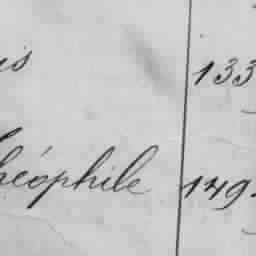 is 133
Théophile 149.